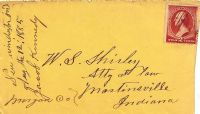 New Winchester Ind
May the 12, 1885
Jacob Kennedy
Morgan Co
W. S. Shirley
Atty at Law
Martinsville
Indiana